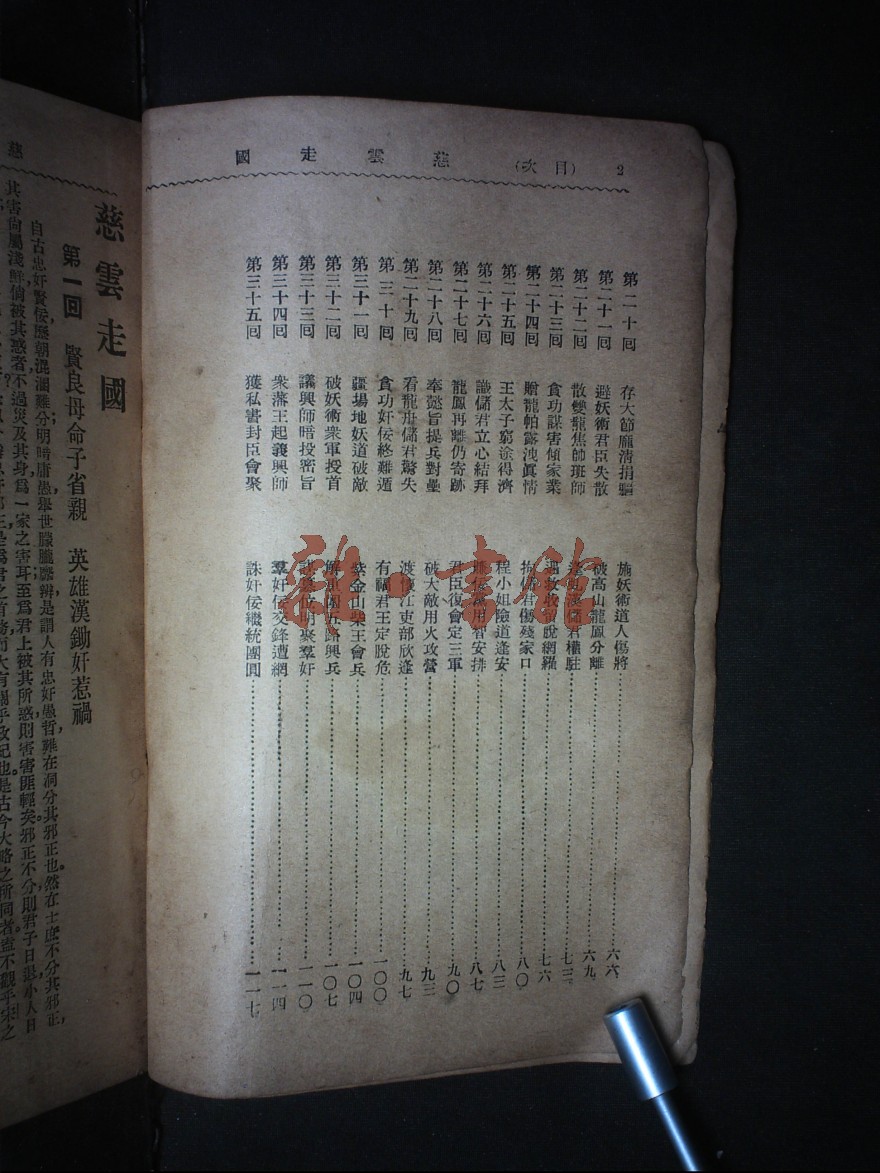 2　（目次）　慈雲走國
第二十回　存大節龐清捐軀　施妖術道人傷將……六六
第二十一回　避妖術君臣失散　破高山龍鳳分離……六九
第二十二回　散雙龍焦帥班師　儲君權駐……七三
第二十三回　貪功謀害傾家業　脫網羅……七六
第二十四回　贈龍帕露洩眞情　君傷殘家口……八〇
第二十五回　王太子窮途得濟　程小姐險道逢安……八三
第二十六回　識儲君立心結拜　用智安排……八七
第二十七回　龍鳳再離仍寄跡　君臣復會定三軍……九〇
第二十八回　奉懿旨提兵對壘　破大敵用火攻營……九三
第二十九回　看龍舟儲君驚失　渡懷江吏部欣逢……九七
第三十回　貪功奸佞終難遁　有福君王定脫危……一〇〇
第三十一回　疆場地妖道破敵　紫金山柴王會兵……一〇四
第三十二回　破妖術衆軍授首　解重圍五路興兵……一〇七
第三十三回　議興師暗投密旨　位明聚羣奸……一一〇
第三十四回　衆藩王起義興師　羣奸佞交鋒遭網……一一四
第三十五回　獲私書封臣會聚　誅奸佞繼統團圓……一一七
慈
慈雲走國
第一回　賢良母命子省親　英雄漢鋤奸惹禍
自古忠奸賢佞歷朝混淆難分明暗庸愚舉世朦朧緊辯是謂人有忠奸愚哲難在洞分其邪正也然在士庶不分其邪正，
其害尙屬淺鮮倘被其惑者不過災及其身爲一家之害耳至爲君上被其所惑則害害匪輕矣邪正不分則君子日退小人日
是爲君之首務而大有關乎政紀也是古今大略之所同者盍不觀乎宋之
龍 書館